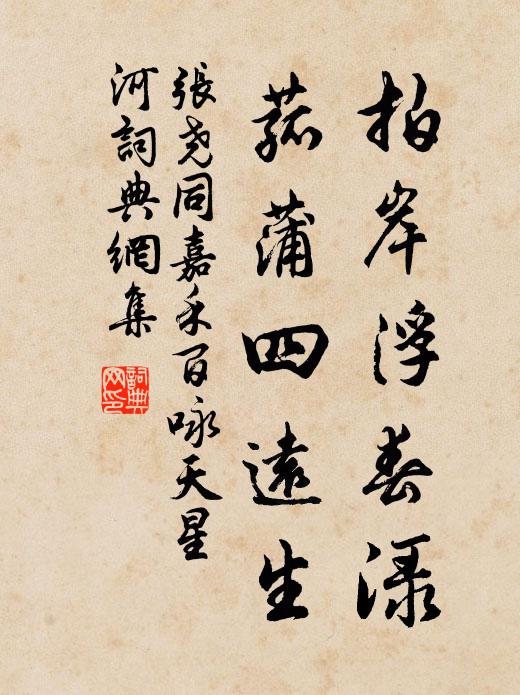 拍岸浮春渌
菰蒲四遠生
張尧同嘉禾百咏天星
河詞典網集
詞典
网印